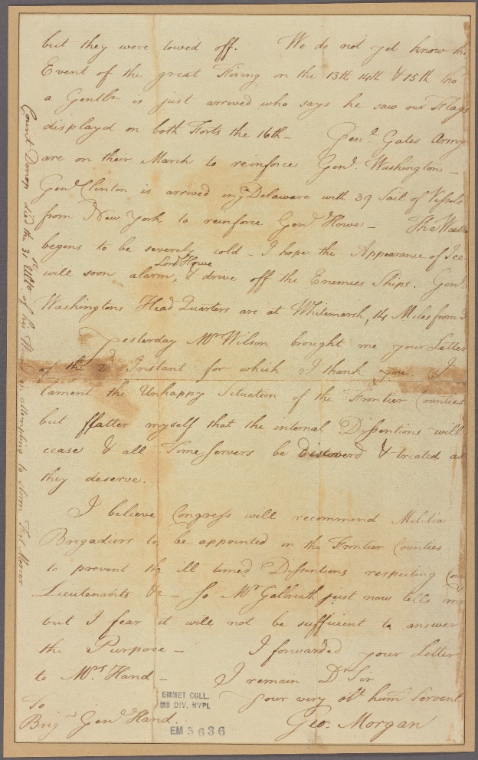 but they were towed off. We do not yet know the
Event of the great Firing on the 13th 14th & 15th
a Gentln is just arrived who says he saw our Flags
displayd on both Forts the 16th— Genl Gates Army
are on their March to reinforce Genl. Washington—
Genl Clinton is arrived in Delaware with 39 Sail of Vessels
from New York to reinforce Genl Howe—
begins to be severely cold— I hope the Appearance of Ice
Lord Howe
will soon alarm, & drive off the Enemies Ships. Genl.
Washingtons Head Quarters are at Whitemarsh, 14 Miles from
Yesterday Mr Wilson brought me your Letter
of the 2d Instant for which I thank you I
lament the Unhappy Situation of the Frontier Counties
but flatter myself that the internal Dissentions will
cease & all Time Servers be discoverd & treated as
they deserve.
I believe Congress will recommend Militia
Brigadiers to be appointed in the Frontier Counties
to prevent the ill timed Dissentions respecting
Lieutenants &c— So Mr Galbraith just now tells me
but I fear it will not be sufficient to answer
the Purpose— I forwarded your Letter
to Mrs Hand— I remain Dr Sir
Your very obt humb Servant
Geo. Morgan
To
Brigr Genl Hand.
EMMET COLL.
MS DIV. NYPL
EM 5636
Count
died the 31st Ulto of his